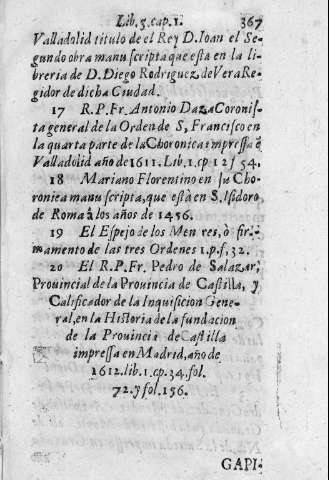 Lib. 5. cap. 1. 367
Valladolid titulo de el Rey D. Ioan el Se-
gundo obra manu scripta que esta en la li-
breria de D. Diego Rodriguez de Vera Re-
gidor de dicha Ciudad.
17 R. P. Fr. Antonio Daza Coronis-
ta general de la Orden de S, Francisco en
la quarta parte de la Choronica impressa ē
Valladolid año de 1611. Lib. 1. cp 12 y 54.
18 Mariano Florentino en su Cho-
ronica manu scripta, que està en S. Isidoro,
de Roma à los años de 1456.
19 El Espejo de los Men res, ò fir-
mamento de las tres Ordenes 1. p. f, 32.
20 El R. P. Fr. Pedro de Salazar,
Prouincial de la Prouincia de Castilla, y
Calificador de la Inquisicion Gene-
ral, en la Historia de la fundacion
de la Prouincia de Castilla
impressa en Madrid, año de
1612. lib. 1. cp. 34. fol.
72. y fol. 156.
GAPI-